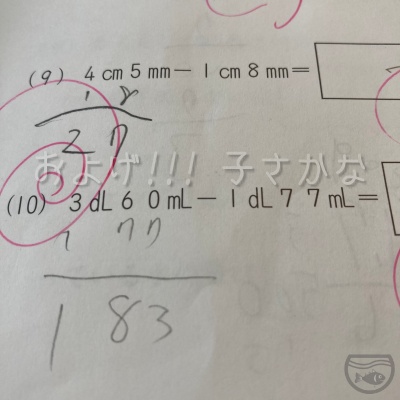 (9) 4cm5mm－1cm8mm＝
1 8
2 7
およげ!!! 子さかな
(10) 3dL60mL－1dL77mL＝
1 77
1 83